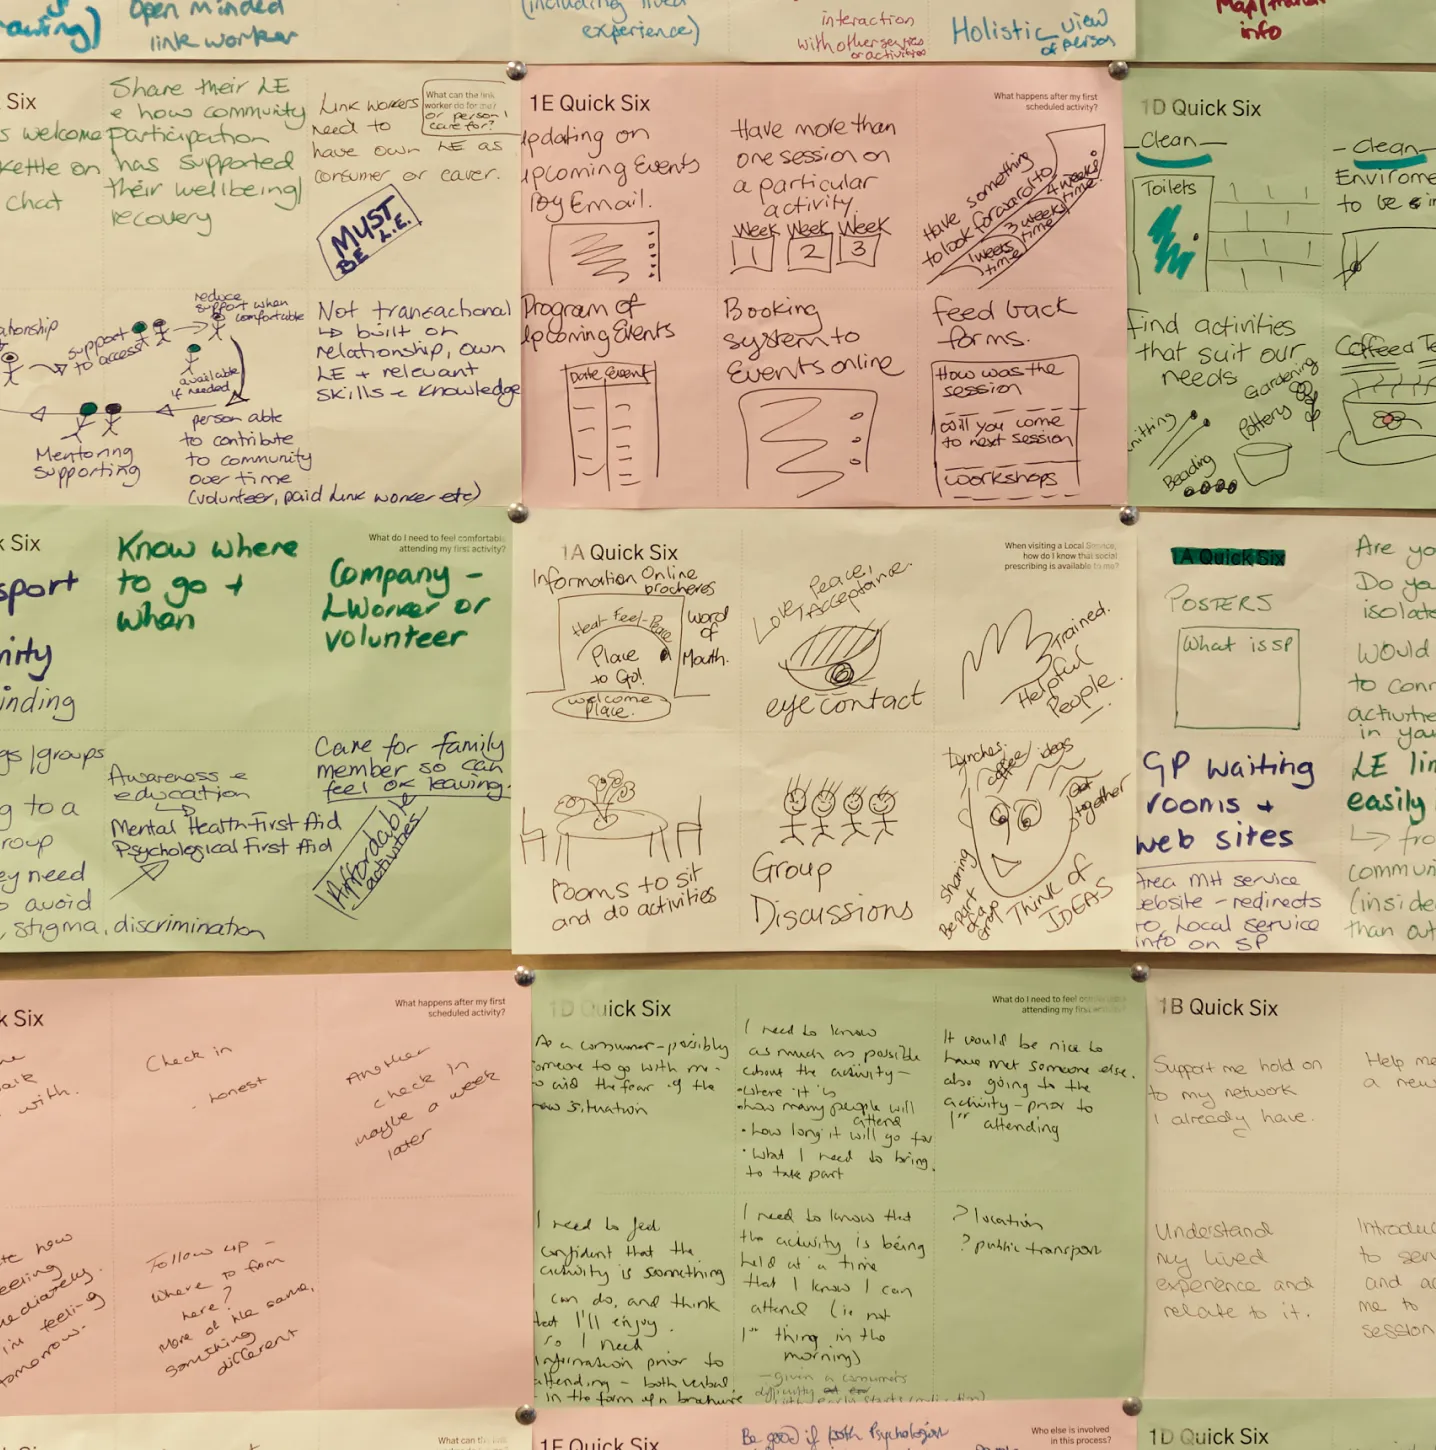 Open minded
link worker
(including lived
experience)
interaction
with other services
or activities
Holistic view
of person
info
Six
s welcome
kettle on
chat
Share their LE
e how community
participation
has supported
their wellbeing/
recovery
Link workers
need to
have own LE as
consumer or carer.
What can the link
worker do for me?
or person I
care for?
MUST
BE L.E.
support
to access
reduce
support when
comfortable
available
if needed
Mentoring
supporting
person able
to contribute
to community
over time
(volunteer, paid Link worker etc)
Not transactional
↳ built on
relationship, own
LE + relevant
skills e knowledge
1E Quick Six
What happens after my first
scheduled activity?
updating on
upcoming Events
By Email.
Have more than
one session on
a particular
activity.
Week Week Week
1 2 3
Have something
to look forward to
1 weeks
time
3 weeks
time
4 weeks
time.
Program of
upcoming Events
Date Event
Booking
system to
Events online
feed back
forms.
How was the
session
will you come
to next session
workshops
1D Quick Six
Clean
Toilets
Clean
to be
find activities
that suit our
needs
Gardening
Pottery
Beading
Six
Know where
to go +
when
What do I need to feel comfortable
attending my first activity?
Company -
LWorker or
volunteer
Awareness e
education
Mental Health First Aid
Psychological First Aid
Care for family
member so can
feel ok leaving.
Affordable
activities
avoid
stigma, discrimination
1A Quick Six
When visiting a Local Service,
how do I know that social
prescribing is available to me?
Information Online
brocheres
Place
to Go!
welcome
Place.
Word
of
Mouth.
Love, Peace,
Acceptance.
eye contact
Trained.
Helpful
People.
rooms to sit
and do activities
Group
Discussions
Lunches
coffee
ideas
Get
together
sharing
Be part
of a
Group
Think of
IDEAS
1A Quick Six
POSTERS
What is SP
Are you
isolate
would
to conn
in you
GP waiting
rooms +
web sites
Area MH service
website - redirects
to Local service
info on SP
LE lin
easily
communi
(inside
than out
Six
What happens after my first
scheduled activity?
with.
Check in
- honest
Another
check in
maybe a week
later
tomorrow.
Follow up -
where to from
here?
More of the same,
something
different
1D Quick Six
What do I need to feel comfortable
attending my first activity?
As a consumer - possibly
someone to go with me -
to aid the fear of the
new situation
I need to know
as much as possible
about the activity -
• where it is
• how many people will
attend
• how long it will go for
• what I need to bring.
to take part
It would be nice to
have met someone else.
also going to the
activity - prior to
1st attending
I need to feel
confident that the
activity is something
I can do, and think
that I'll enjoy.
so I need
information prior to
attending - both verbal
- in the form of a brochure
I need to know that
the activity is being
held at a time
that I know I can
attend (ie not
1st thing in the
morning)
- given a consumers
difficulty
? location
? public transport
1B Quick Six
Support me hold on
to my network
I already have.
Help me
a new
Understand
my lived
experience and
relate to it.
Introduc
to serv
and ac
me to
session
1F Quick Six
Be good if both Psychologist
Who else is involved
in this process?
1D Quick Six